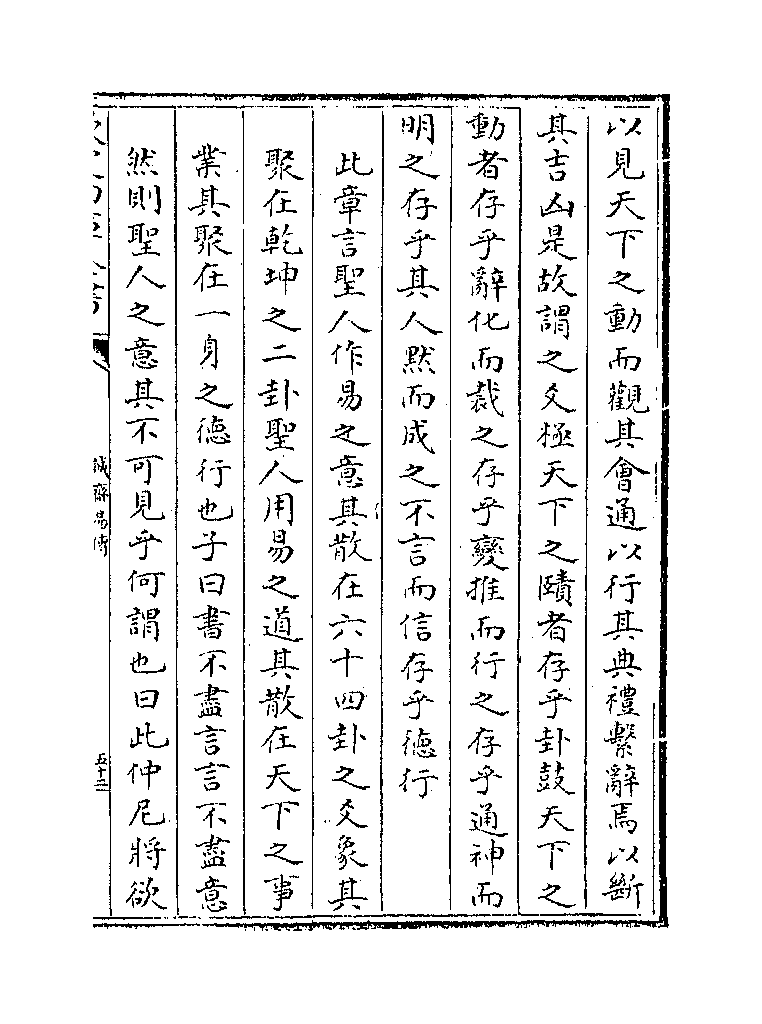 以見天下之動而觀其會通以行其典禮繫辭焉以斷
其吉凶是故謂之爻極天下之賾者存乎卦鼓天下之
動者存乎辭化而裁之存乎變推而行之存乎通神而
明之存乎其人黙而成之不言而信存乎徳行
此章言聖人作易之意其散在六十四卦之爻象其
聚在乾坤之二卦聖人用易之道其散在天下之事
業其聚在一身之徳行也子曰書不盡言言不盡意
然則聖人之意其不可見乎何謂也曰此仲尼將欲
誠齋易傳
五十二